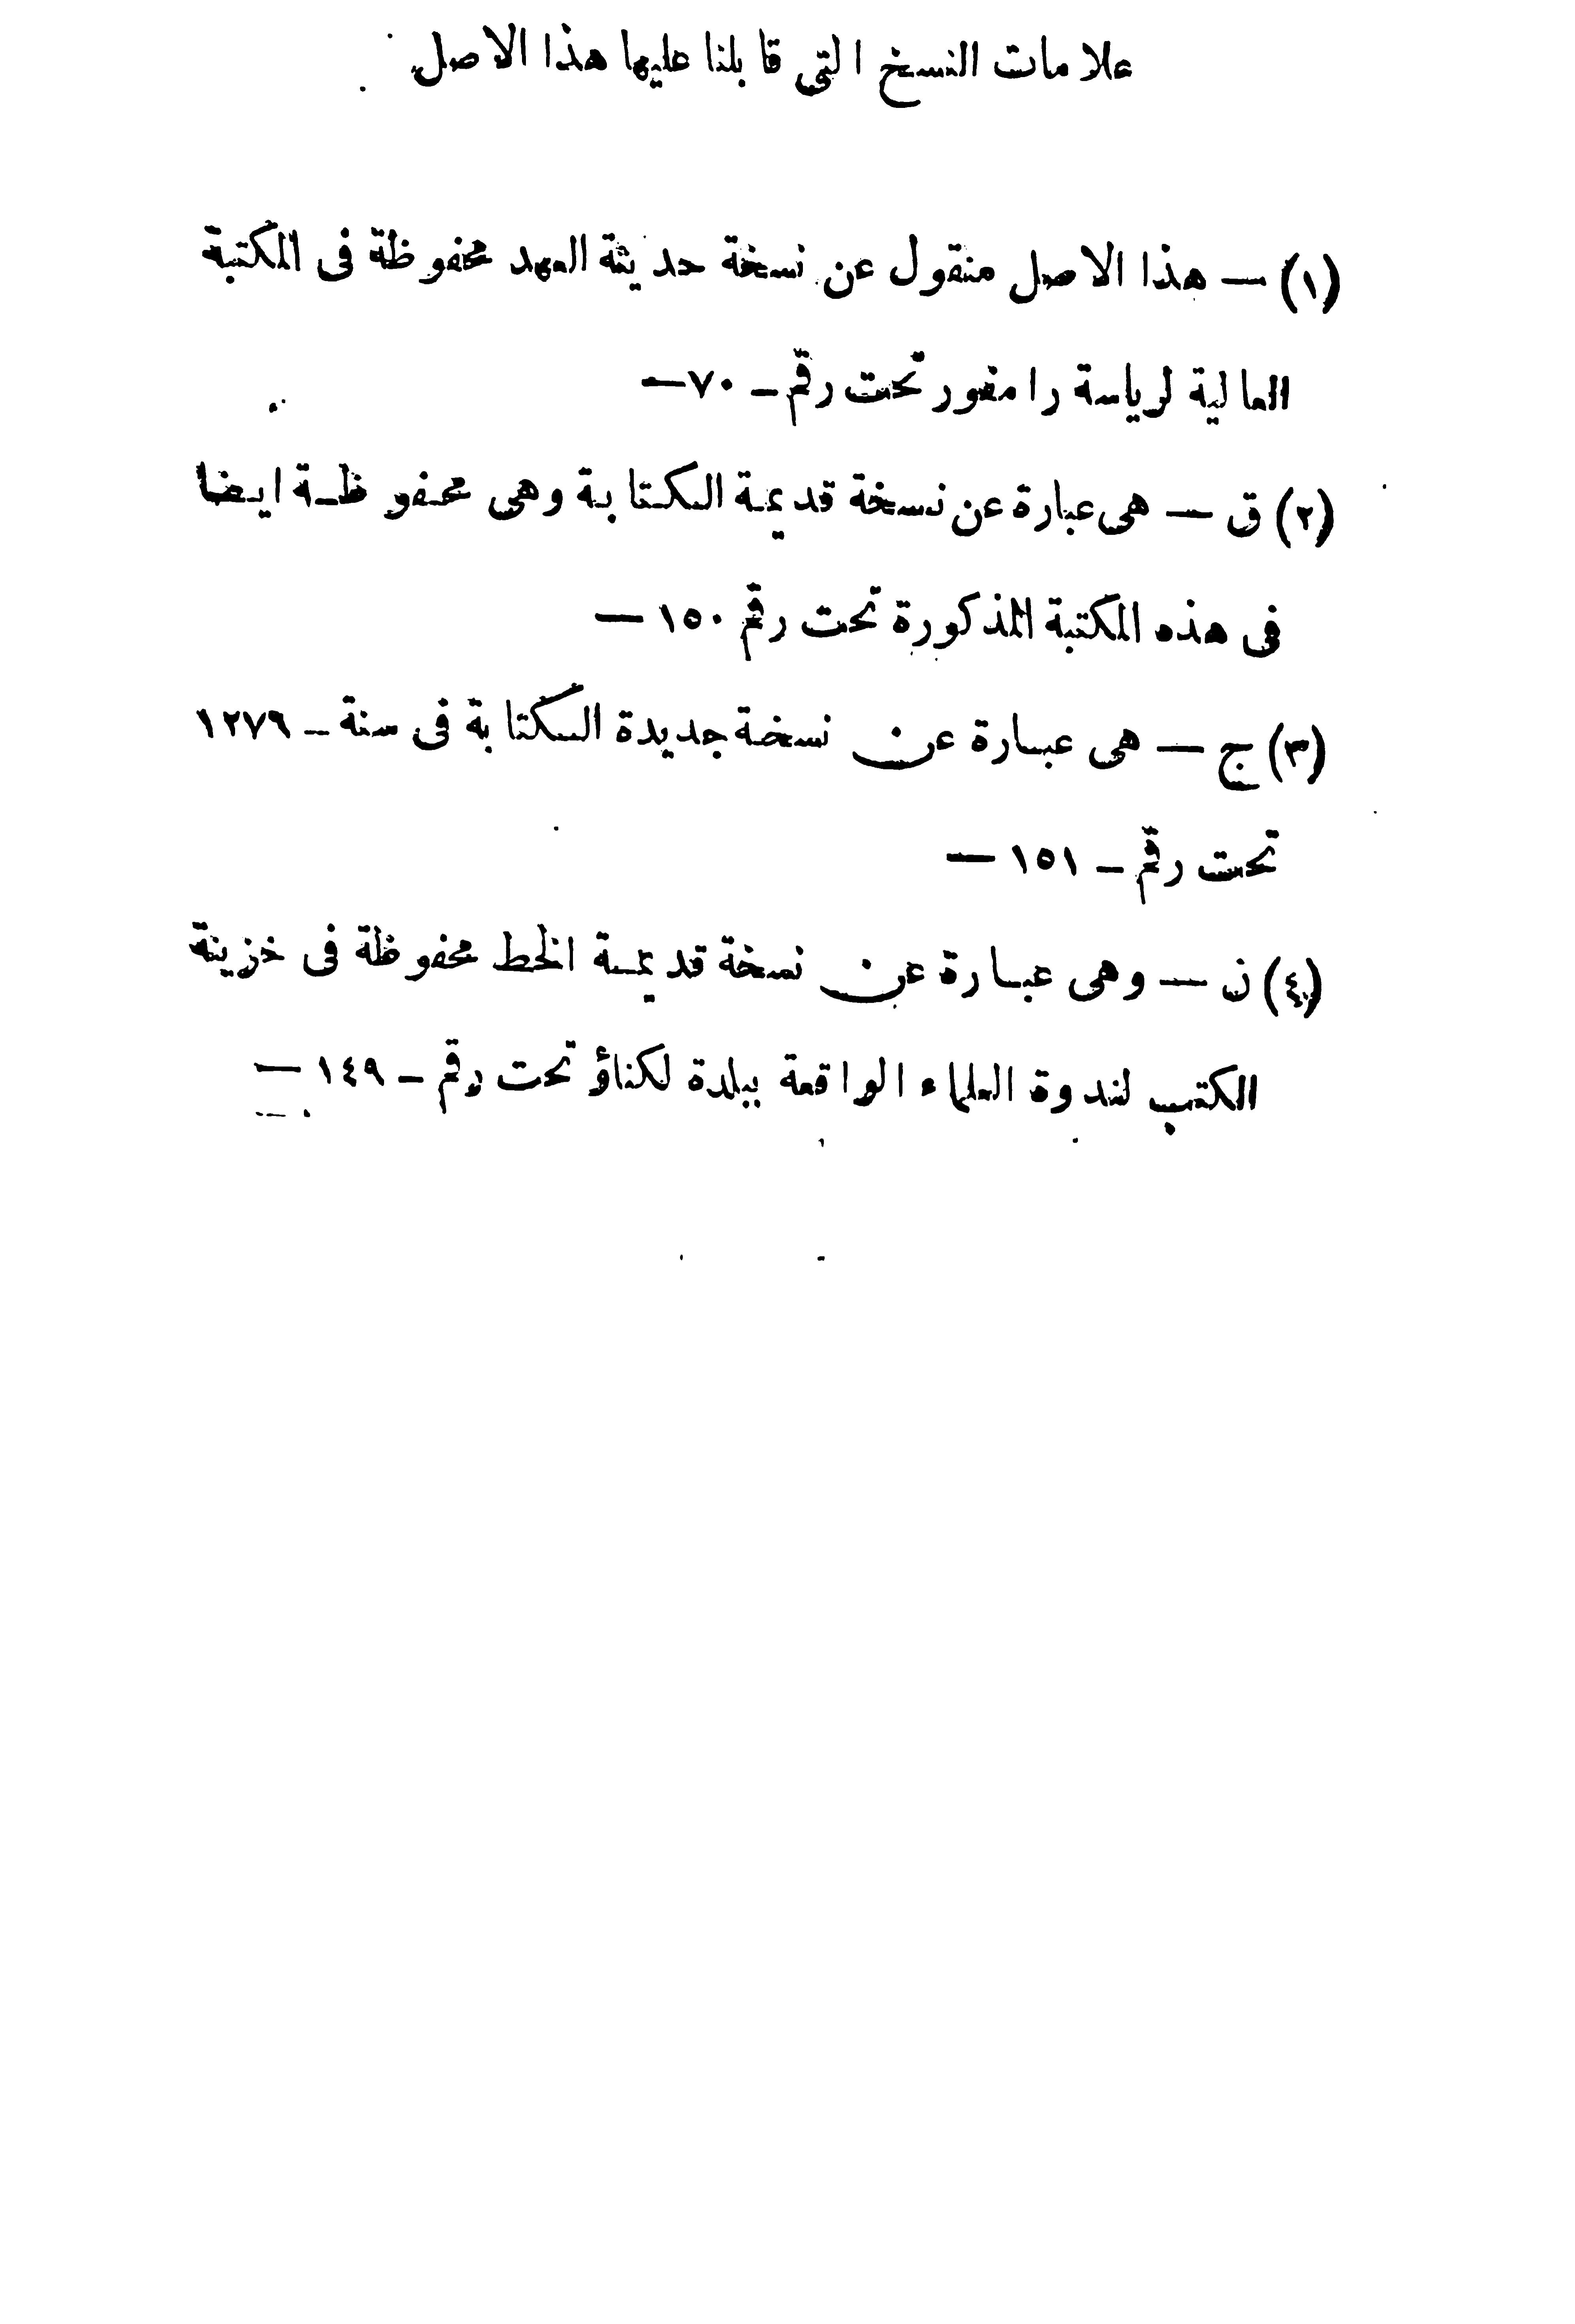 علامات النسخ التي قابلنا عليها هذا الاصل
(١) — هذا الاصل منقول عن نسخة حديثة العهد محفوظة فى المكتبة
العالية لرياسة رامفور تحت رقم – ٧٠ —
(٢) ق — هى عبارة عن نسخة قديمة الكتابة وهى محفوظة ايضا
فى هذه المكتبة المذكورة تحت رقم ١٥٠ —
(٣) ج — هى عبارة عن نسخة جديدة الكتابة فى سنة – ١٢٧٩
تحت رقم – ١٥١ —
(٤) ن — وهى عبارة عن نسخة قديمة الخط محفوظة فى خزينة
الكتب لندوة العلماء الواقعة ببلدة لكناؤ تحت رقم – ١٤٩ —